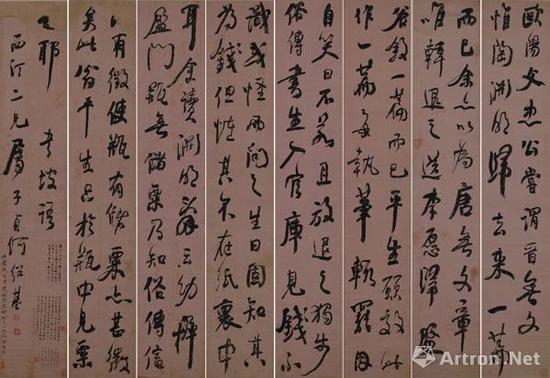 歐陽文忠公嘗謂晉無文章
惟陶淵明歸去來一篇
而已余亦以為唐無文章
唯韓退之送李愿歸盤
谷敘一篇而已平生願效此
作一篇每執筆輒罷因
自笑曰不若且放退之獨步
俗傳書生入官庫見錢不
識或怪而問之生曰固知其
為錢但怪其不在紙裹中
耳余讀淵明辭云幼稚
盈門瓶無儲粟乃知俗傳信
有徵使瓶有儲粟亦甚微
矣此翁平生只於瓶中見粟
也耶 書坡語
西汀二兄屬 子貞何紹基
Artron.Net